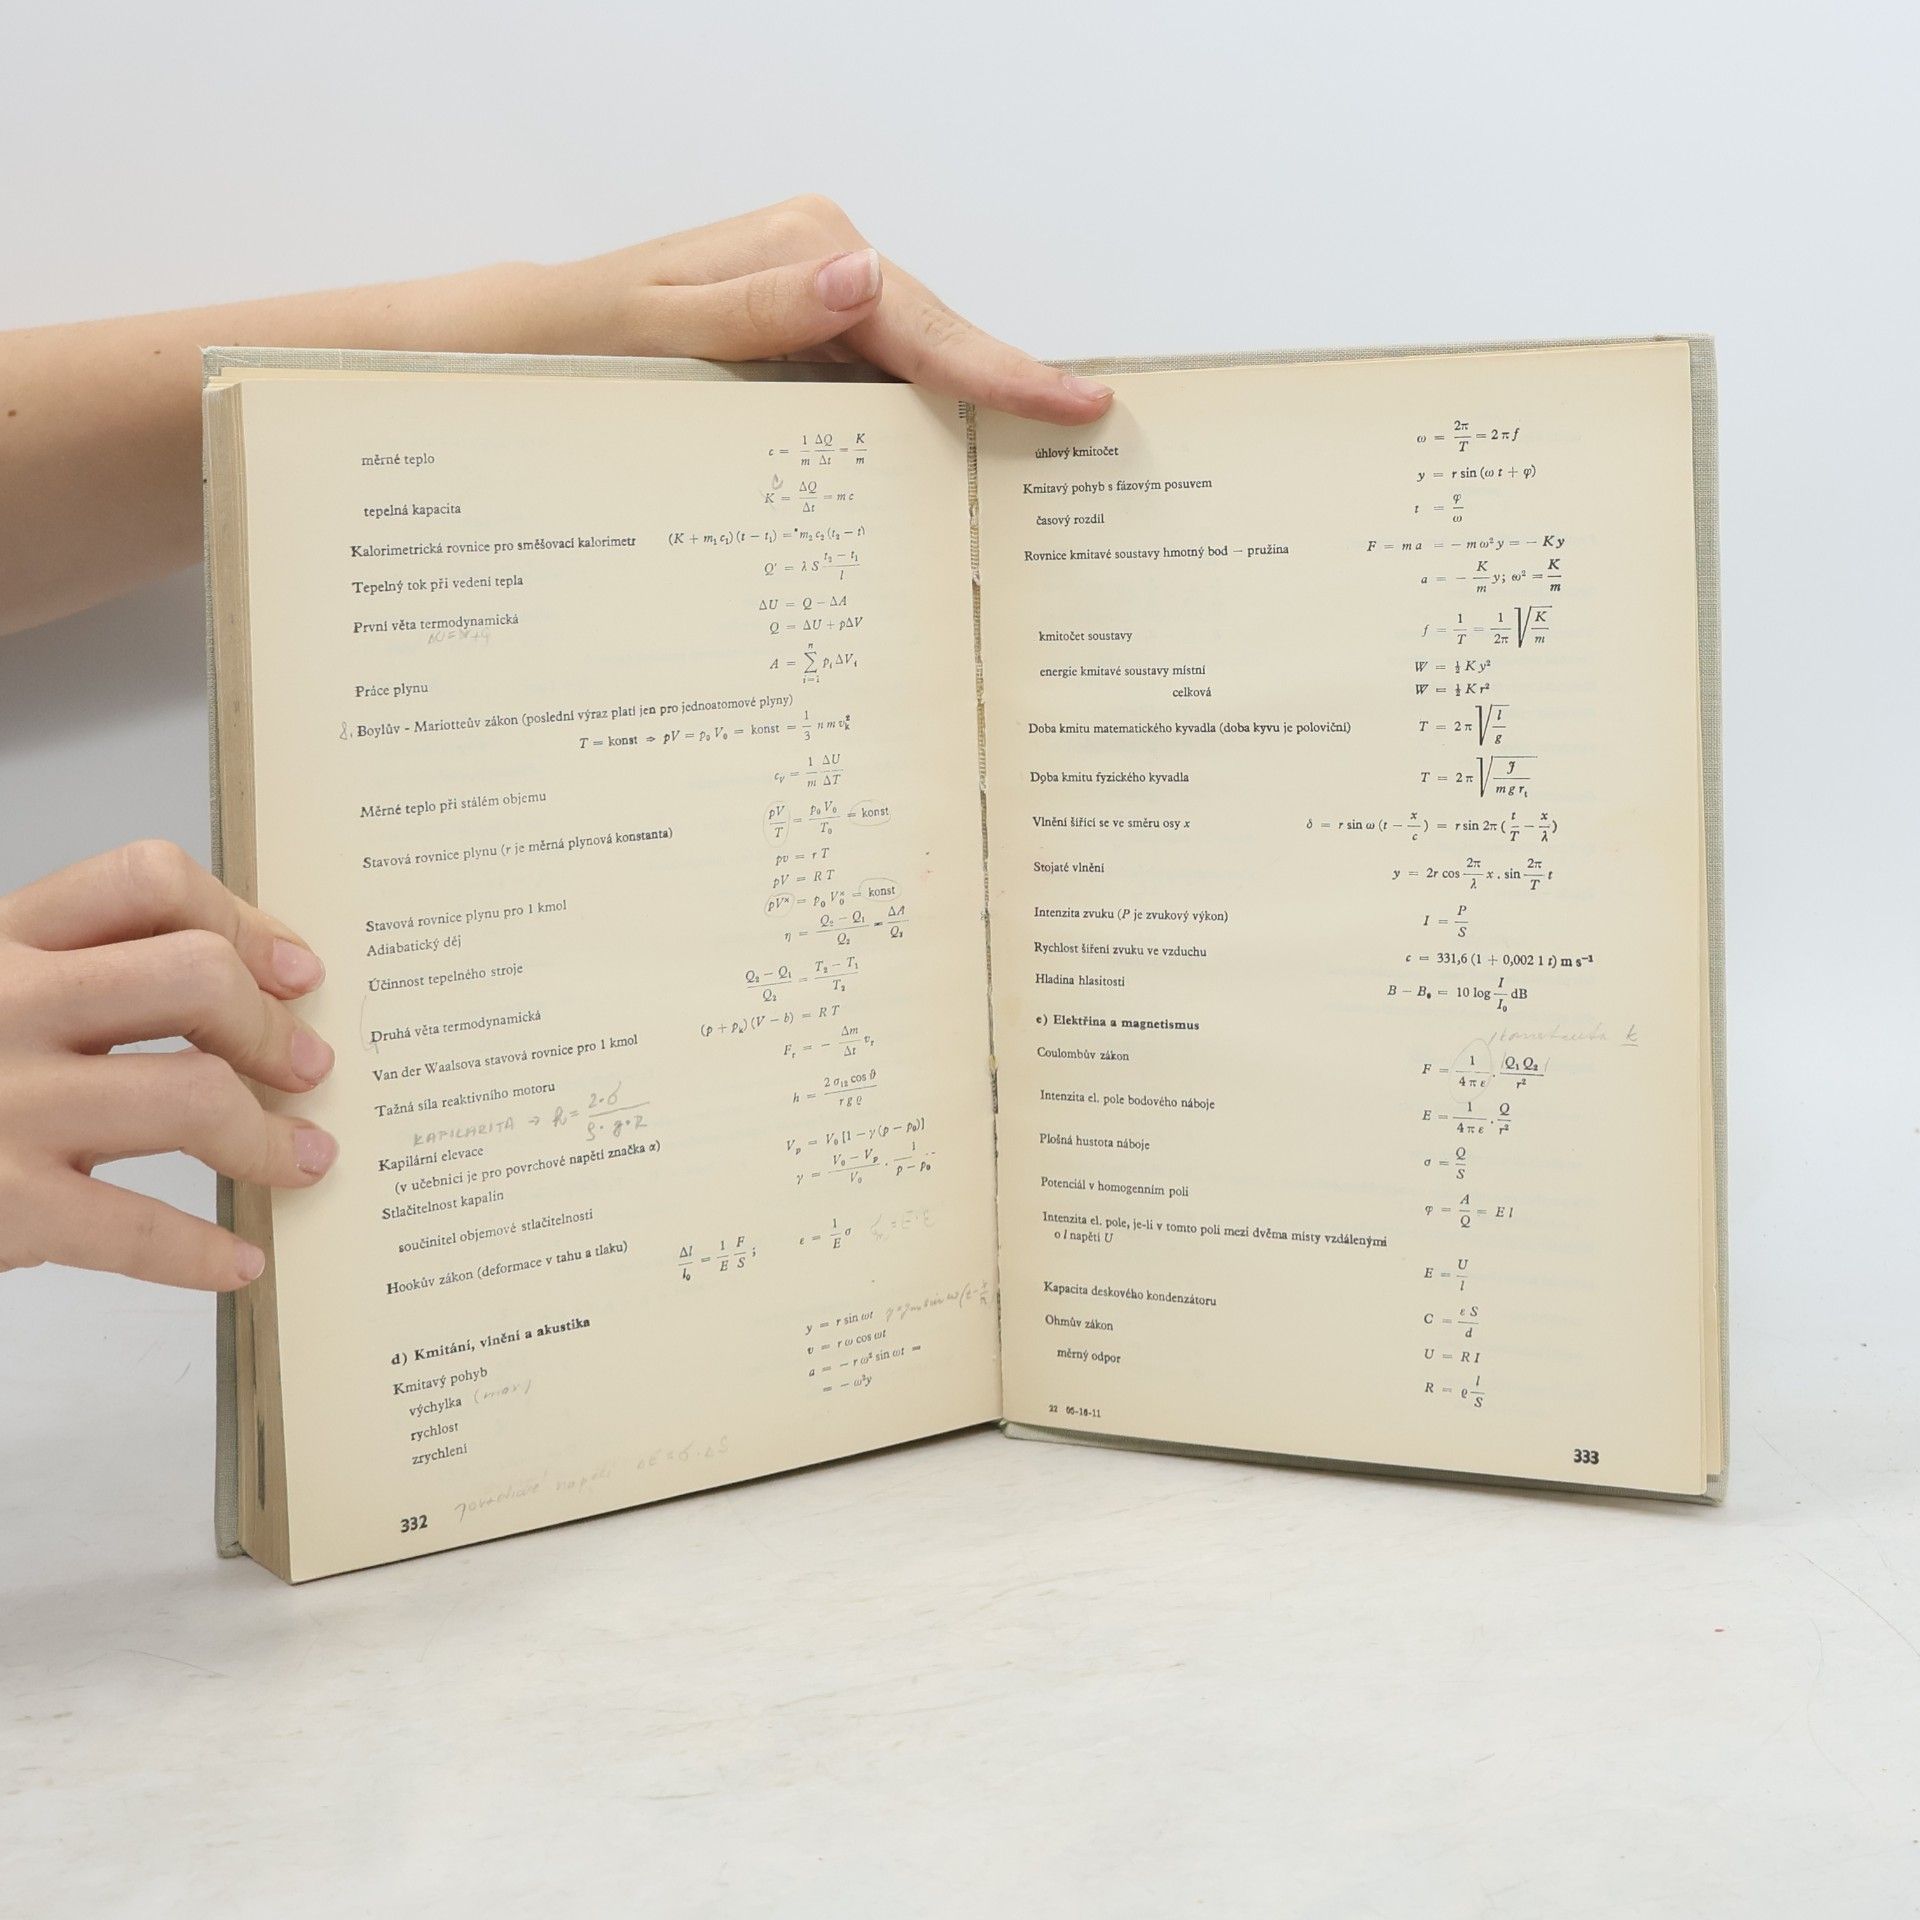 měrné teplo c = 1/m ΔQ/Δt = K/m
tepelná kapacita K = ΔQ/Δt = m c
Kalorimetrická rovnice pro směšovací kalorimetr (K + m₁ c₁) (t − t₁) = m₂ c₂ (t₂ − t)
Tepelný tok při vedení tepla Q' = λ S (t₂ − t₁)/l
První věta termodynamická ΔU = Q − ΔA
Q = ΔU + pΔV
Práce plynu A = ∑ᵢ₌₁ⁿ pᵢ ΔVᵢ
8. Boylův - Mariotteův zákon (poslední výraz platí jen pro jednoatomové plyny)
T = konst ⇒ pV = p₀ V₀ = konst = 1/3 n m vₖ²
Měrné teplo při stálém objemu c_V = 1/m ΔU/ΔT
Stavová rovnice plynu (r je měrná plynová konstanta) pV/T = p₀ V₀/T₀ = konst
pv = r T
Stavová rovnice plynu pro 1 kmol pV = R T
Adiabatický děj pVˣ = p₀ V₀ˣ = konst
Účinnost tepelného stroje η = (Q₂ − Q₁)/Q₂ = ΔA/Q₂
Druhá věta termodynamická (Q₂ − Q₁)/Q₂ = (T₂ − T₁)/T₂
Van der Waalsova stavová rovnice pro 1 kmol (p + pₖ) (V − b) = R T
Tažná síla reaktivního motoru Fᵣ = − Δm/Δt vᵣ
KAPILARITA → h = 2·σ/ρ·g·R
Kapilární elevace h = 2 σ₁₂ cos ϑ/r g ϱ
(v učebnici je pro povrchové napětí značka α)
Stlačitelnost kapalin Vₚ = V₀ [1 − γ (p − p₀)]
součinitel objemové stlačitelnosti γ = (V₀ − Vₚ)/V₀ . 1/(p − p₀)
Hookův zákon (deformace v tahu a tlaku) Δl/l₀ = 1/E F/S ; ε = 1/E σ
d) Kmitání, vlnění a akustika
Kmitavý pohyb
výchylka (max) y = r sin ωt
rychlost v = r ω cos ωt
zrychlení a = − r ω² sin ωt =
= − ω²y
povrchové napětí ΔE = σ · ΔS
332
úhlový kmitočet ω = 2π/T = 2 π f
Kmitavý pohyb s fázovým posuvem y = r sin (ω t + φ)
časový rozdíl t = φ/ω
Rovnice kmitavé soustavy hmotný bod — pružina F = m a = − m ω² y = − K y
a = − K/m y; ω² = K/m
kmitočet soustavy f = 1/T = 1/2π √(K/m)
energie kmitavé soustavy místní W = ½ K y²
celková W = ½ K r²
Doba kmitu matematického kyvadla (doba kyvu je poloviční) T = 2 π √(l/g)
Doba kmitu fyzického kyvadla T = 2 π √(J/m g rₜ)
Vlnění šířící se ve směru osy x δ = r sin ω (t − x/c) = r sin 2π (t/T − x/λ)
Stojaté vlnění y = 2r cos 2π/λ x . sin 2π/T t
Intenzita zvuku (P je zvukový výkon) I = P/S
Rychlost šíření zvuku ve vzduchu c = 331,6 (1 + 0,002 1 t) m s⁻¹
Hladina hlasitosti B − B₀ = 10 log I/I₀ dB
e) Elektřina a magnetismus
konstanta k
Coulombův zákon F = 1/4 π ε . Q₁ Q₂/r²
Intenzita el. pole bodového náboje E = 1/4 π ε . Q/r²
Plošná hustota náboje σ = Q/S
Potenciál v homogenním poli φ = A/Q = E l
Intenzita el. pole, je-li v tomto poli mezi dvěma místy vzdálenými
o l napětí U E = U/l
Kapacita deskového kondenzátoru C = ε S/d
Ohmův zákon U = R I
měrný odpor R = ϱ l/S
22 05-16-11
333